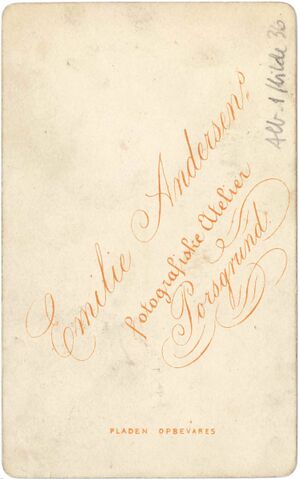 Emilie Andersens
fotografiske Atelier
Porsgrund.
PLADEN OPBEVARES
Alb. 1 Kilde 36.